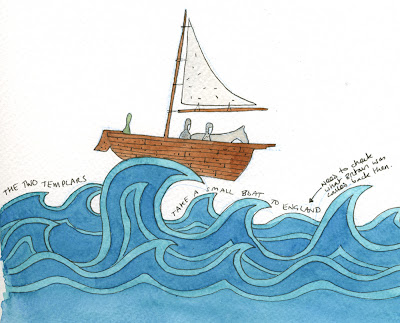 THE TWO TEMPLARS
TAKE A SMALL BOAT TO ENGLAND
NEED TO CHECK
WHAT BRITAIN WAS
CALLED BACK THEN.